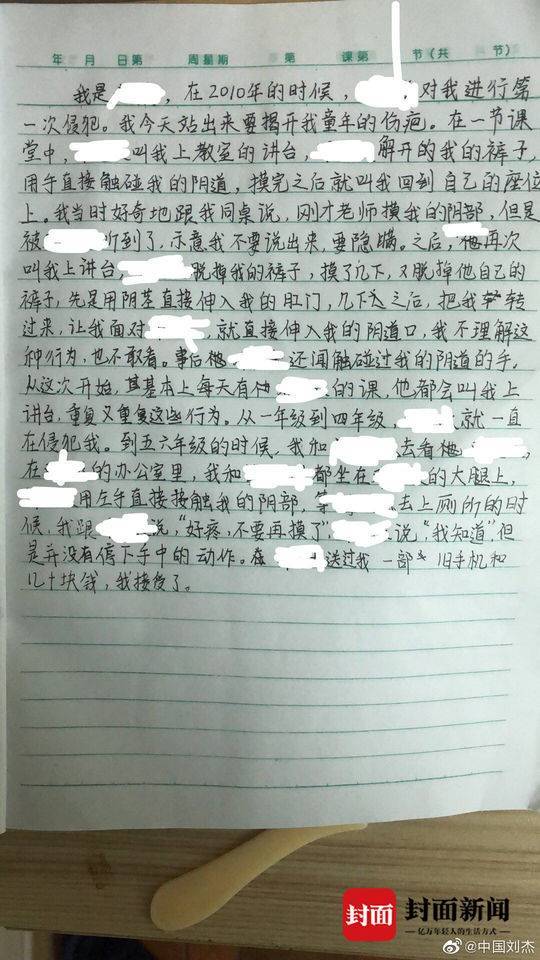 年 月 日第 周星期 第 课第 节(共 节)
我是 ，在2010年的时候， 对我进行第
一次侵犯。我今天站出来要揭开我童年的伤疤。在一节课
堂中， 叫我上教室的讲台， 解开的我的裤子，
用手直接触碰我的阴道，摸完之后就叫我回到自己的座位
上。我当时好奇地跟我同桌说，刚才老师摸我的阴部，但是
被 听到了，示意我不要说出来，要隐瞒。之后，他再次
叫我上讲台， 脱掉我的裤子，摸了几下，又脱掉他自己的
裤子，先是用阴茎直接伸入我的肛门，几下之后，把我转
过来，让我面对 就直接伸入我的阴道口，我不理解这
种行为，也不敢看。事后他 还闻触碰过我的阴道的手。
从这次开始，其基本上每天有他 的课，他都会叫我上
讲台，重复又重复这些行为。从一年级到四年级， 就一直
在侵犯我。到五六年级的时候，我和 去看他 ，
在 的办公室里，我和 都坐在 的大腿上，
用左手直接接触我的阴部，等 去上厕所的时
候，我跟 说，“好疼，不要再摸了”， 说“我知道”但
是并没有停下手中的动作。在 送过我一部 旧手机和
几十块钱，我接受了。
封面 封面新闻
亿万年轻人的生活方式
@中国刘杰